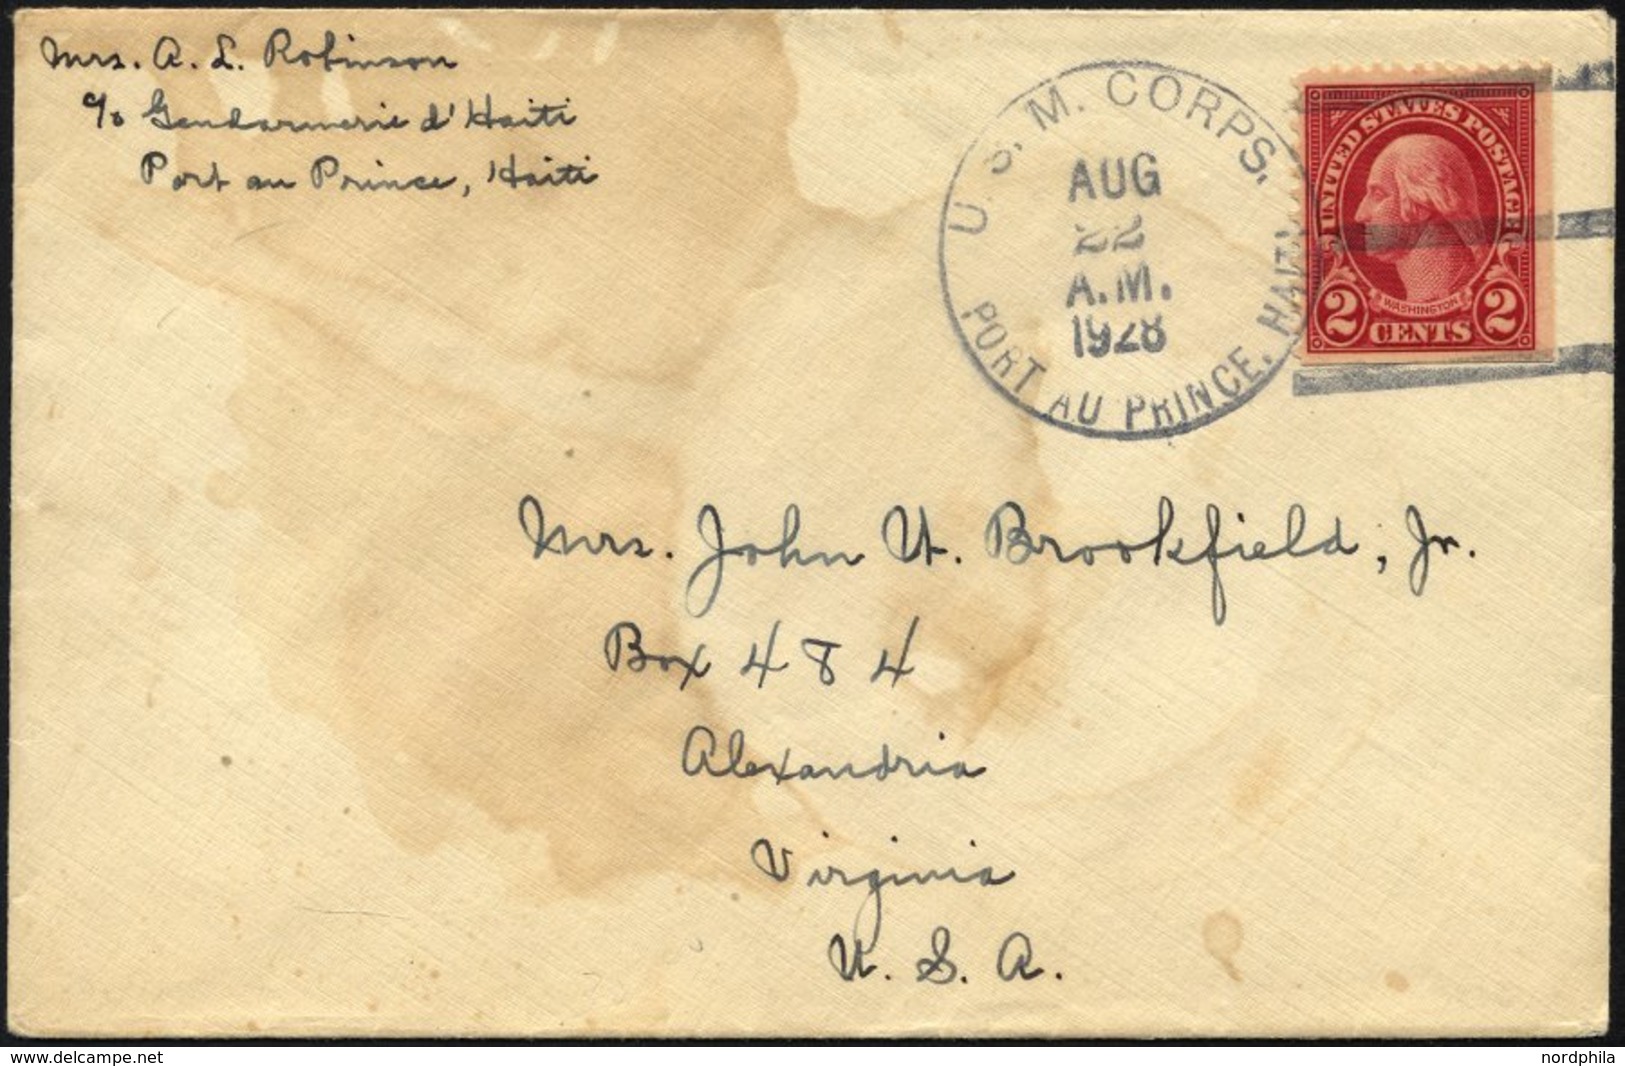 Mrs. A. L. Robinson
c/o Gendarmerie d'Haiti
Port au Prince, Haiti
U. S. M. CORPS.
AUG
22
A.M.
1928
PORT AU PRINCE, HAITI
UNITED STATES POSTAGE
WASHINGTON
2 CENTS 2
Mrs. John W. Brookfield, Jr.
Box 484
Alexandria
Virginia
U. S. A.
www.delcampe.net
nordphila